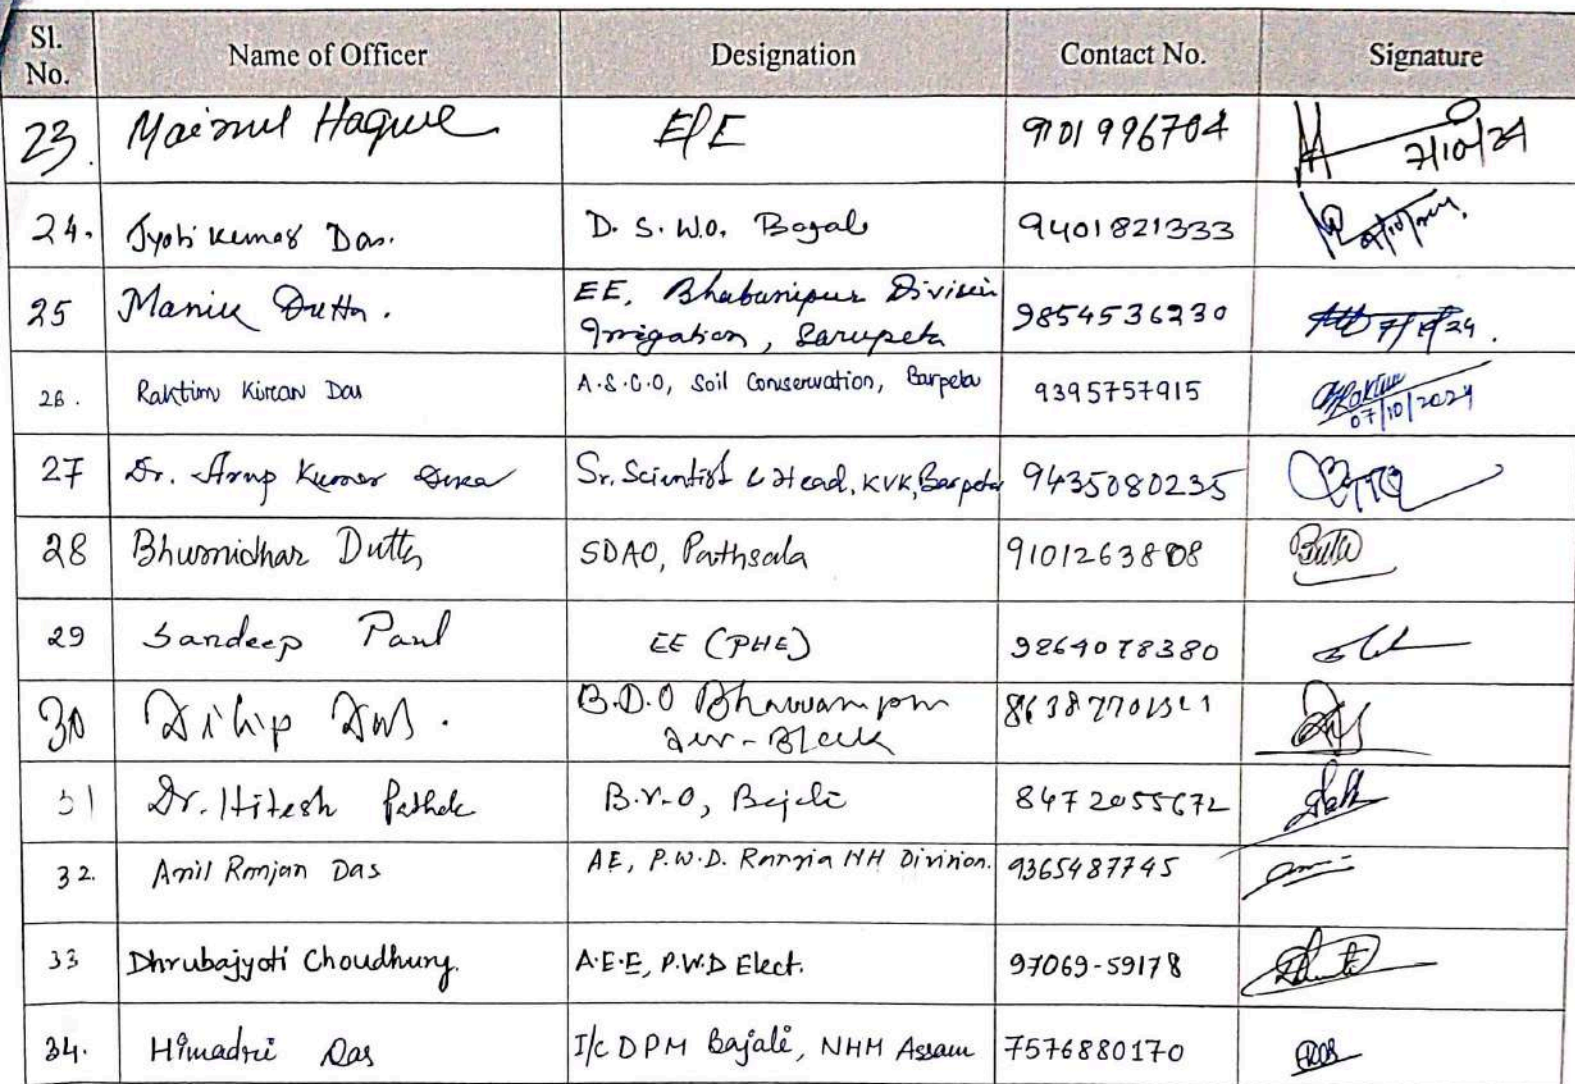 Sl. No. Name of Officer Designation Contact No. Signature
23. Mainul Haque EPE 9101996704 7/10/24
24. Jyoti Kumar Das. D. S. W.O. Bajali 9401821333
25 Manik Dutta. EE, Bhabanipur Division Irrigation, Sarupeta 9854536230
26. Raktim Kiran Das A.S.C.O, Soil Conservation, Barpeta 9395757915 07/10/2024
27 Dr. Arup Kumar Deka Sr. Scientist & Head, KVK, Barpeta 9435080235
28 Bhumidhar Dutta SDAO, Pathsala 9101263808
29 Sandeep Paul EE (PHE) 9864078380
30 Dilip Das. B.D.O Dev-Block
31 Dr. Hitesh Pathak B.V.O, Bajali 8472055672
32. Anil Ranjan Das AE, P.W.D. Rangia NH Division. 9365487745
33 Dhrubajyoti Choudhury. A.E.E, P.W.D Elect. 97069-59178
34. Himadri Das I/c DPM Bajali, NHM Assam 7576880170